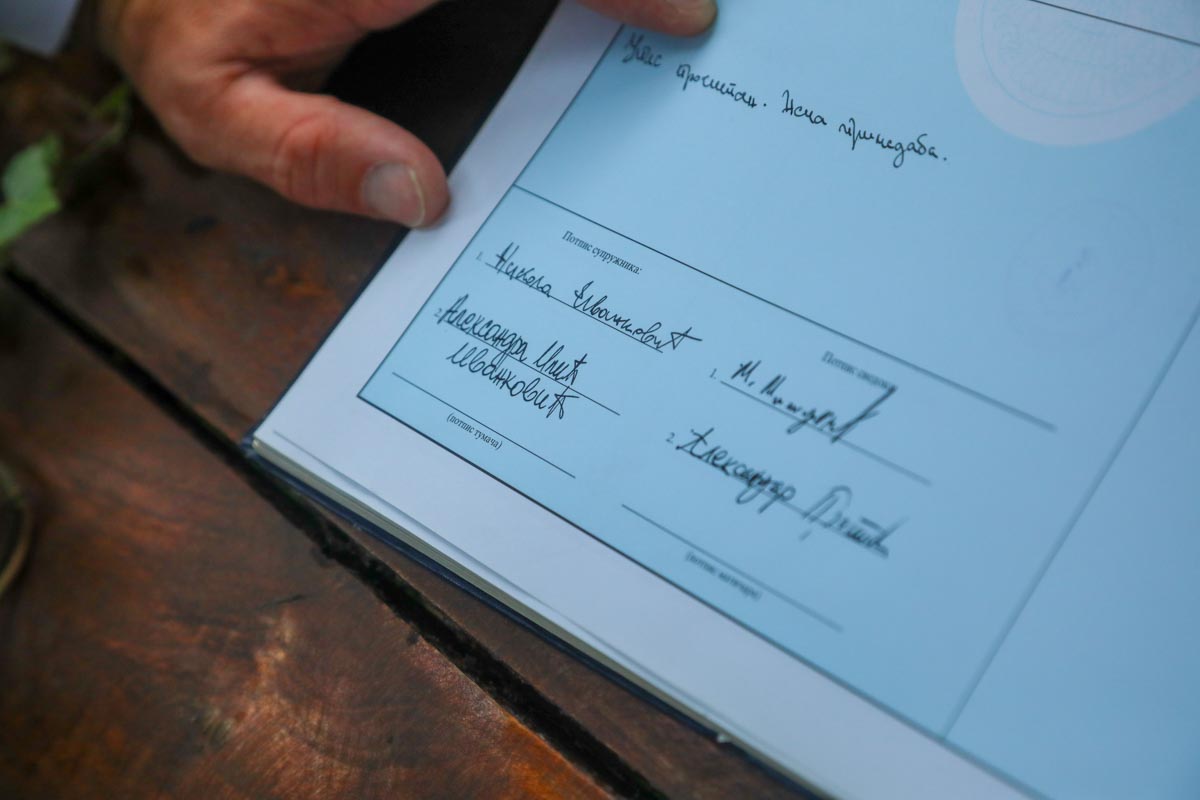 Упис прочитан. Нема примедаба.
Потпис супружника:
1. Никола Ивановић
2. Александра Илић
Ивановић
(потпис тумача)
Потпис сведока
1. М.
2. Александар
(потпис матичара)